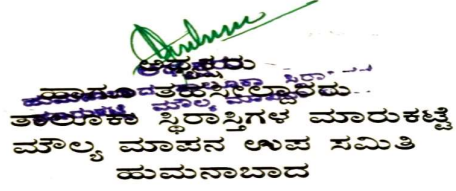 ಅಧ್ಯಕ್ಷರು
ಹಾಗೂ ತಹಸೀಲ್ದಾರರು
ತಾಲೂಕಾ ಸ್ಥಿರಾಸ್ತಿಗಳ ಮಾರುಕಟ್ಟೆ
ಮೌಲ್ಯ ಮಾಪನ ಉಪ ಸಮಿತಿ
ಹುಮನಾಬಾದ